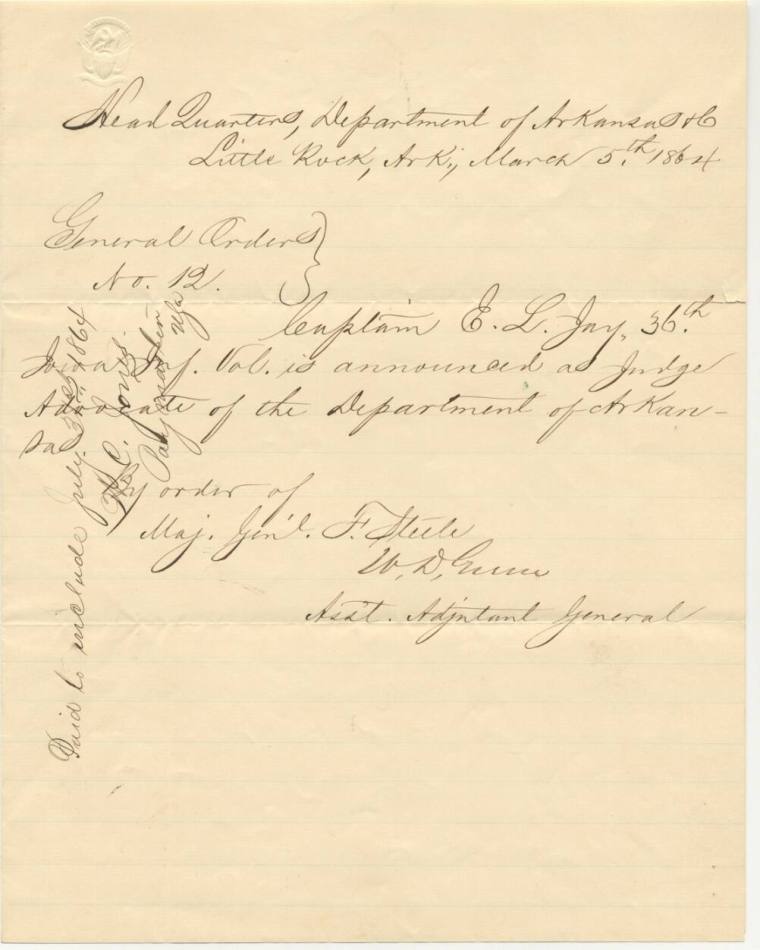 Head Quarters, Department of Arkansas &c
Little Rock, Ark., March 5.th 1864
General Orders
No. 12.
Captain E. L. Joy, 36.th
Iowa Inf. Vol. is announced as Judge
Advocate of the Department of Arkan-
sas
By order of
Maj. Gen'l. F. Steele
W. D. Green
Ass't. Adjutant General
Paid to include July 31st 1864
C. Jones
Paymaster
USA